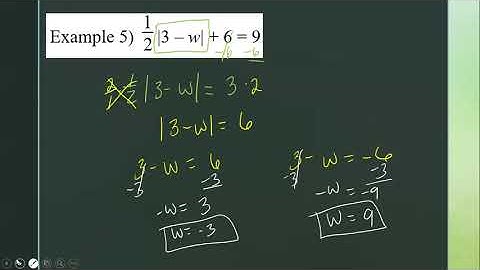 Example 5) 1/2 |3 – w| + 6 = 9
-6 -6
2/1 · 1/2 |3-w| = 3·2
|3-w| = 6
3-w = 6
-3 -3
-w = 3
w = -3
3-w = -6
-3 -3
-w = -9
w = 9